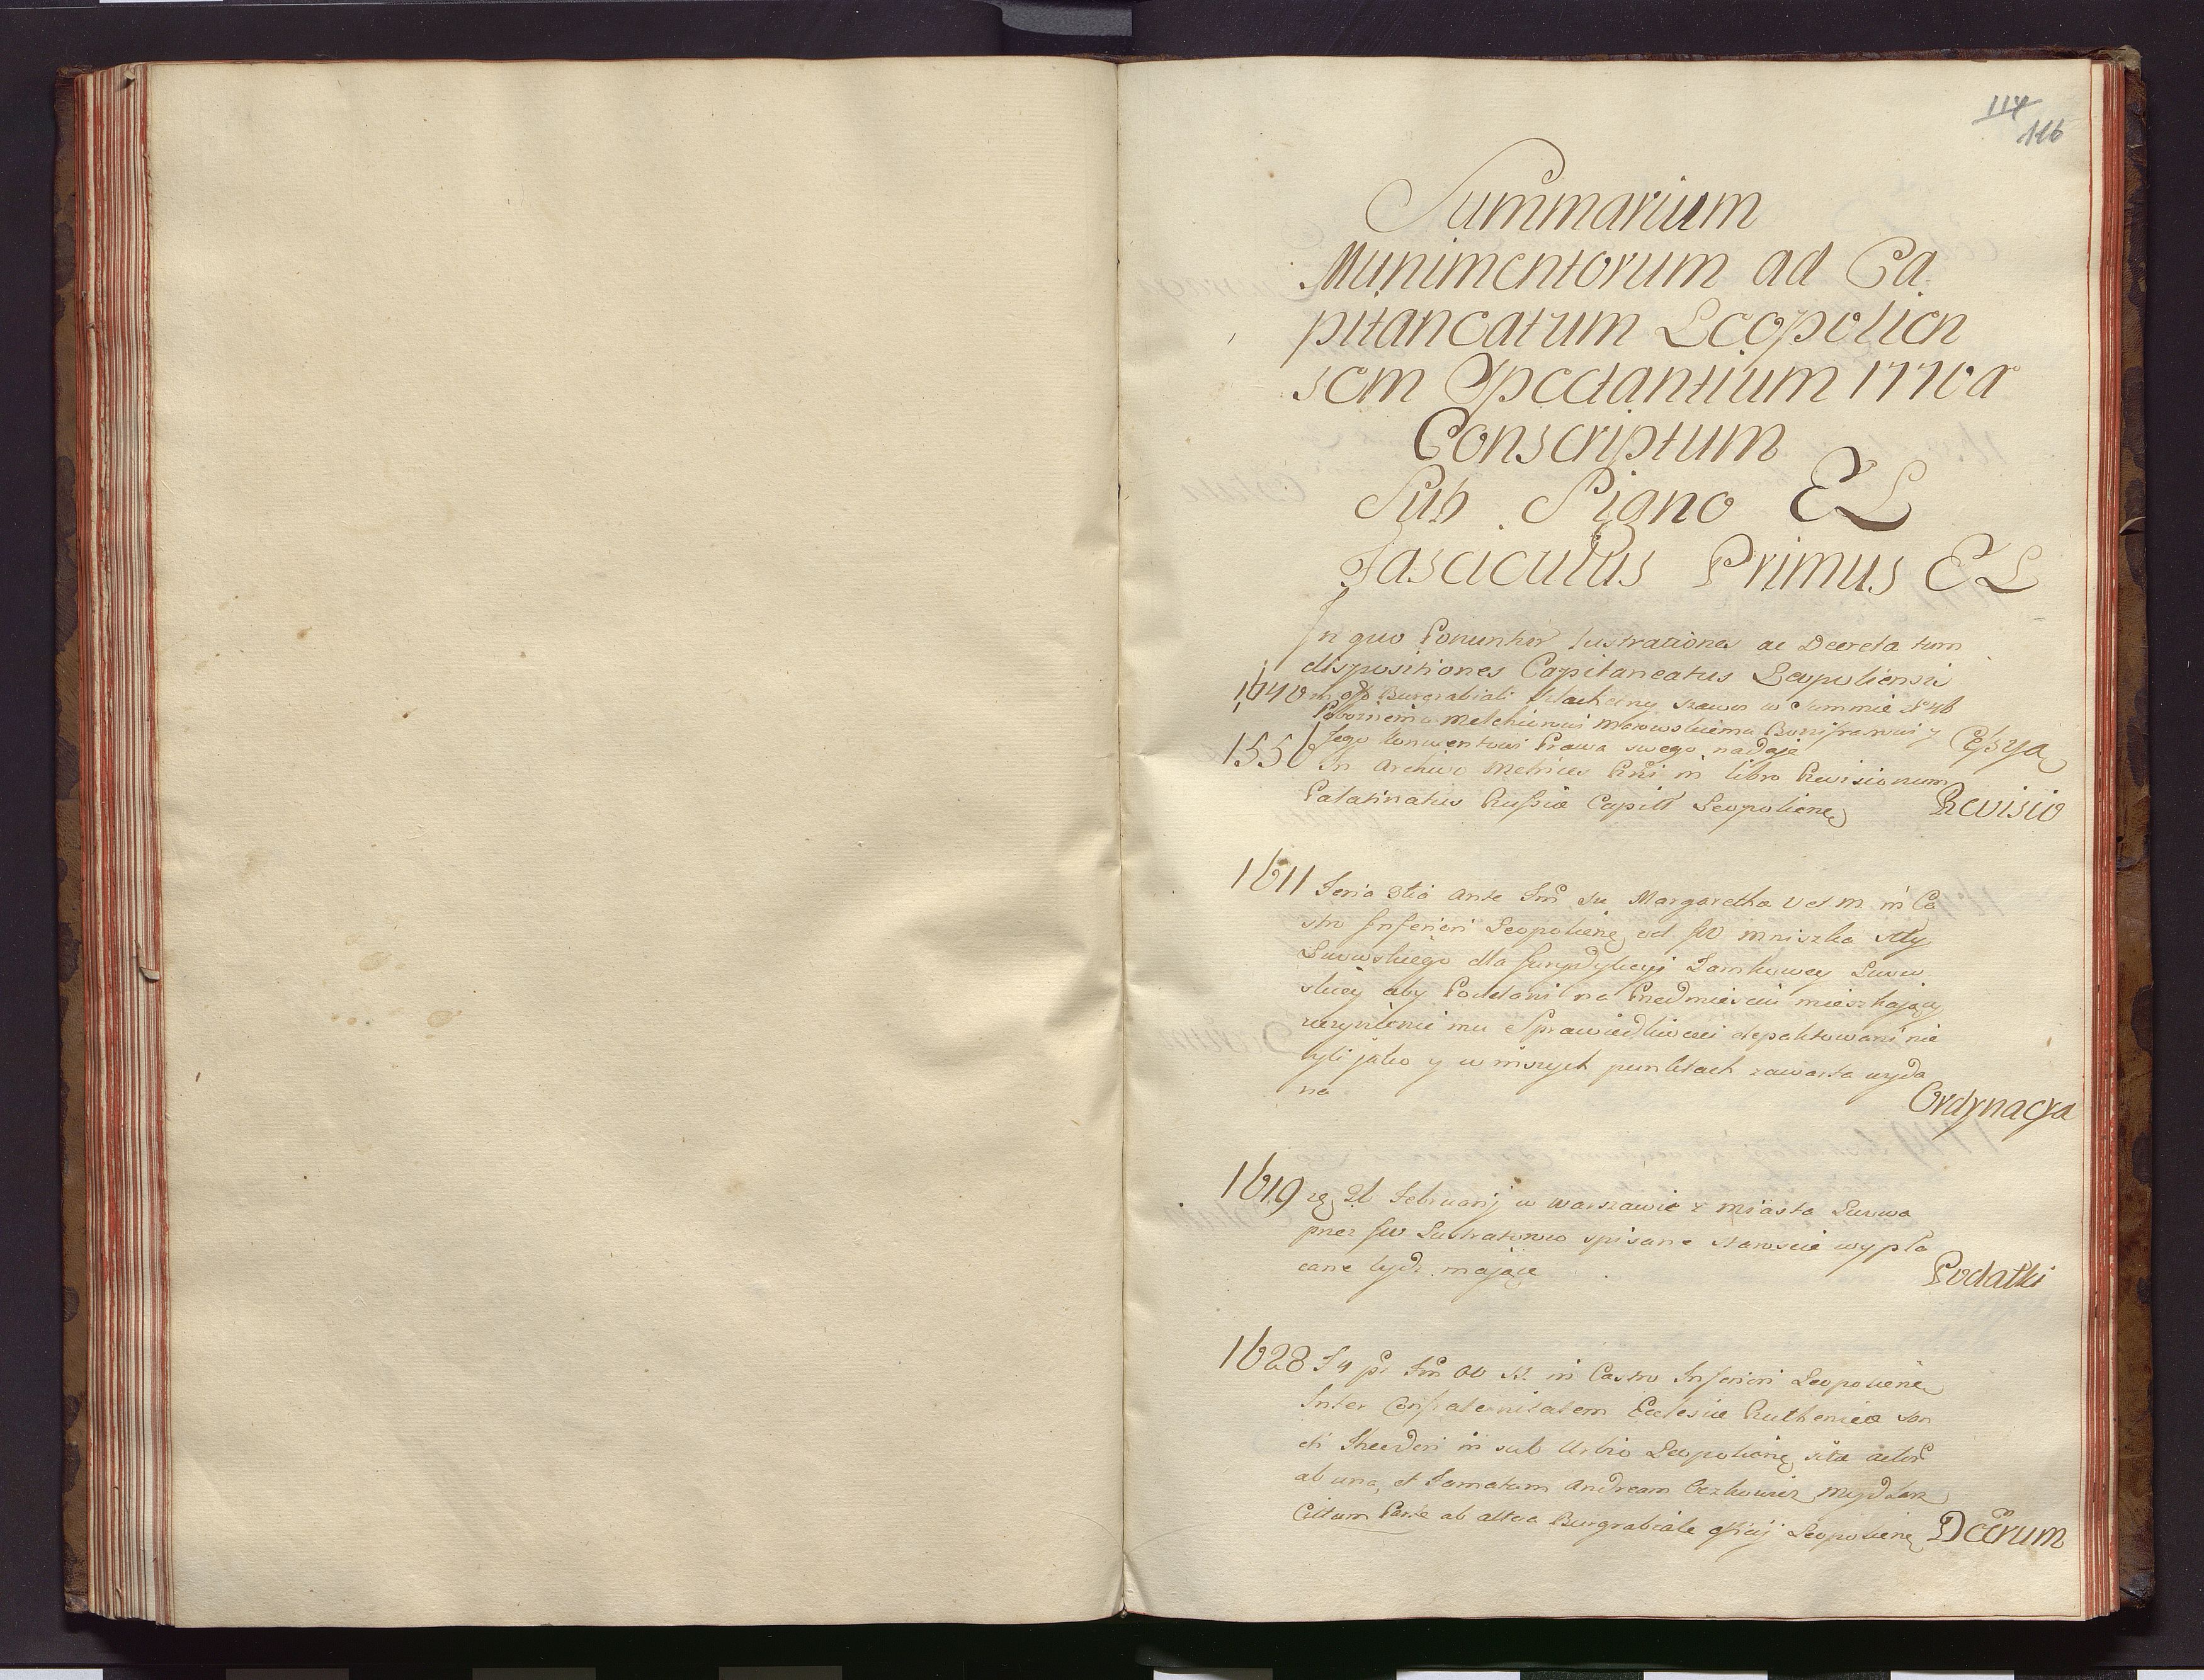 114
116
Summarium
Munimentorum ad Ca
pitaneatum Leopolien
sem Spectantium 1770 a
Conscriptum
Sub Signo EL
Fasciculus Primus EL
In quo Ponuntur lustrationes ac Decreta tum
dispositiones Capitaneatus Leopoliensis
1640 in Burgrabiali Szlachetny w Summie
Melchiorowi y
Jego Prawa swego nadaje Cessya
1556 In Archivo Metrices Rni in libro Revisionum
Palatinatus Russiæ Capitt Leopolien Revisio
1611 Feria 3tia Ante Margaretha V et M in Ca
stro Inferiori Leopolien od JW Mniszka Stty
Lwowskiego dla Jurysdykcyi Zamkowey Lwow
skiey aby Poddani na Przedmiesciu mieszkający
uczynienie mu Sprawiedliwosci depaktowani nie
byli jako y w inszych punktach zawarta wyda
na Ordynacya
1619 26 Februarij w Warszawie z miasta Lwowa
przez JW Lustratorow spisane staroscie wypła
cane bydz mające Podatki
1628 F 4 in Castro Inferiori Leopolien
Inter Confraternitatem Eclesiæ Ruthenicæ san
cti Theodori in sub Urbio Leopolien sitæ
ab una, et Famatum Andream
Cittum Parte ab altera Burgrabiale officij Leopolien Dctrum